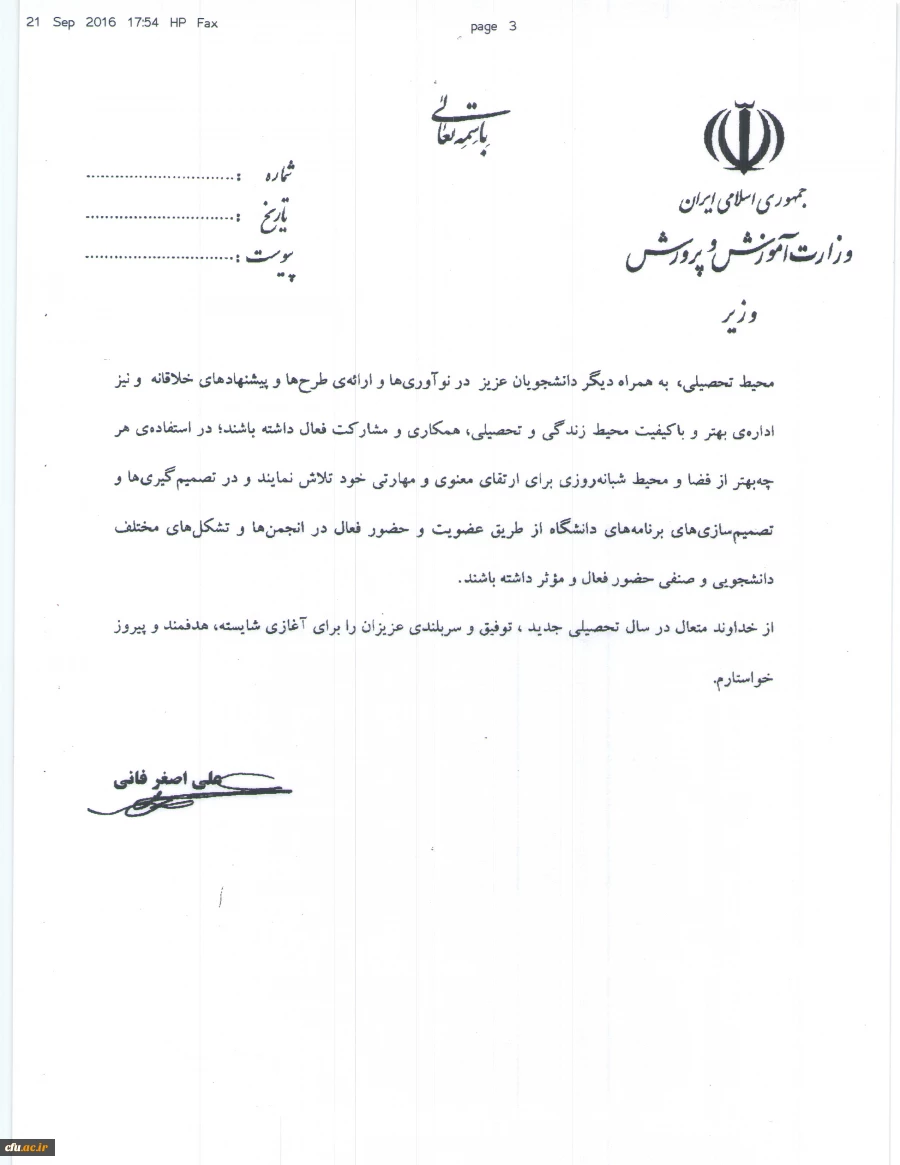 21 Sep 2016 17:54 HP Fax
page 3
باسمه‌تعالی
جمهوری اسلامی ایران
وزارت آموزش و پرورش
وزیر
شماره : ................................
تاریخ : ................................
پیوست : ................................
محیط تحصیلی، به همراه دیگر دانشجویان عزیز در نوآوری‌ها و ارائه‌ی طرح‌ها و پیشنهادهای خلاقانه و نیز
اداره‌ی بهتر و باکیفیت محیط زندگی و تحصیلی، همکاری و مشارکت فعال داشته باشند؛ در استفاده‌ی هر
چه‌بهتر از فضا و محیط شبانه‌روزی برای ارتقای معنوی و مهارتی خود تلاش نمایند و در تصمیم‌گیری‌ها و
تصمیم‌سازی‌های برنامه‌های دانشگاه از طریق عضویت و حضور فعال در انجمن‌ها و تشکل‌های مختلف
دانشجویی و صنفی حضور فعال و مؤثر داشته باشند.
از خداوند متعال در سال تحصیلی جدید ، توفیق و سربلندی عزیزان را برای آغازی شایسته، هدفمند و پیروز
خواستارم.
علی اصغر فانی
cfu.ac.ir